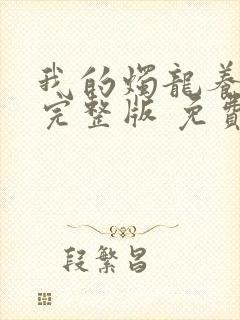 我的燭龍養
完整版 免費
段繁昌